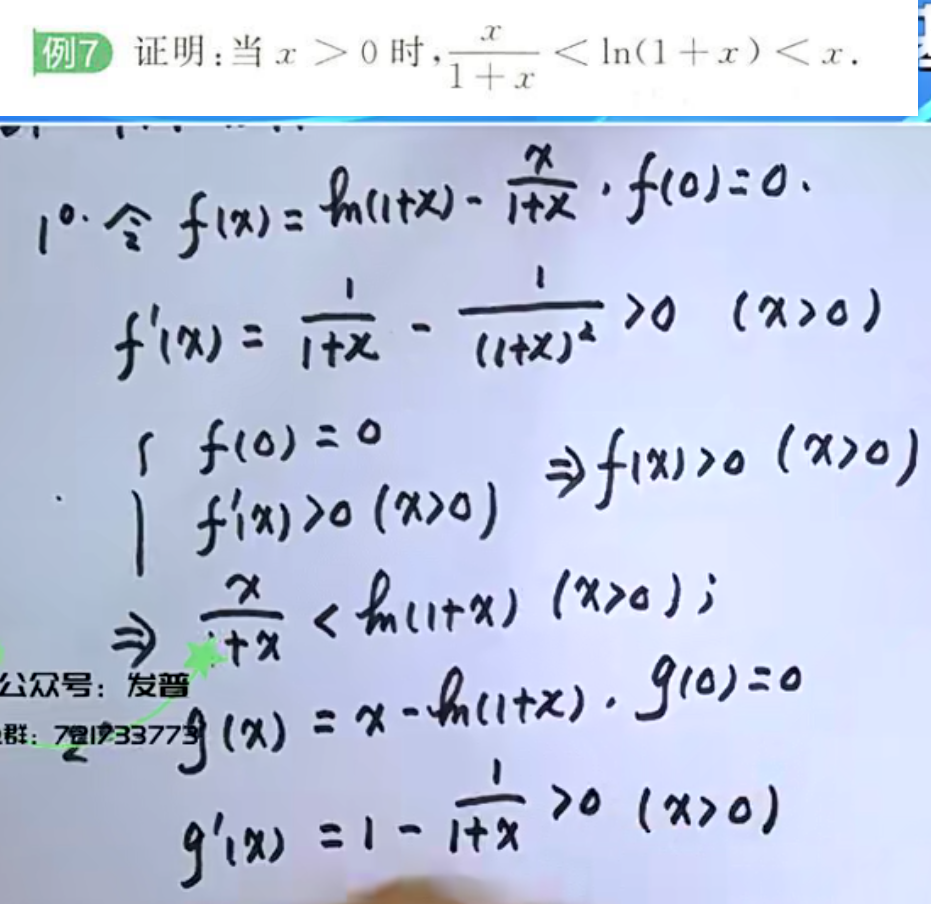 例7 证明:当 x > 0 时, x/(1+x) < ln(1+x) < x.
1°. 令 f(x) = ln(1+x) - x/(1+x), f(0)=0.
f'(x) = 1/(1+x) - 1/(1+x)² >0 (x>0)
{ f(0) = 0
f'(x) >0 (x>0) ⇒ f(x) >0 (x>0)
⇒ x/(1+x) < ln(1+x) (x>0);
公众号: 发普
2° g(x) = x - ln(1+x), g(0)=0
群: 721733773
g'(x) = 1 - 1/(1+x) >0 (x>0)